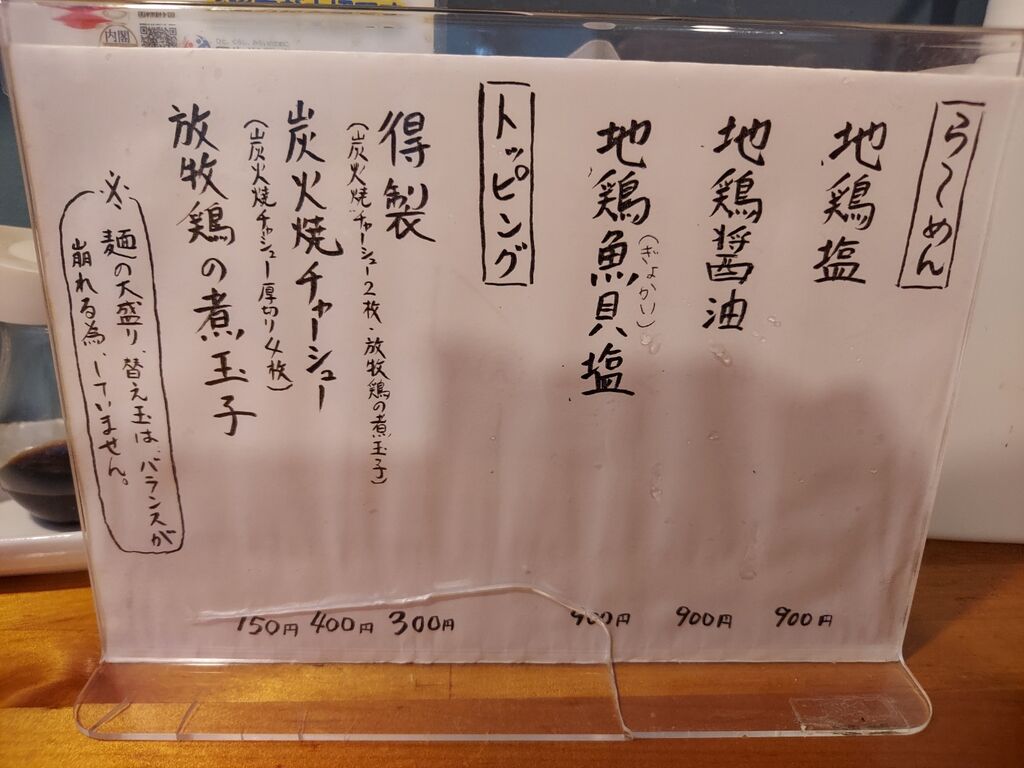 らーめん
地鶏塩 900円
地鶏醤油 900円
地鶏魚貝塩 900円
(ぎょかい)
トッピング
得製 300円
(炭火焼チャーシュー2枚・放牧鶏の煮玉子)
炭火焼チャーシュー 400円
(炭火焼チャーシュー厚切り4枚)
放牧鶏の煮玉子 150円
※麺の大盛り、替え玉は、バランスが
崩れる為、していません。
内閣